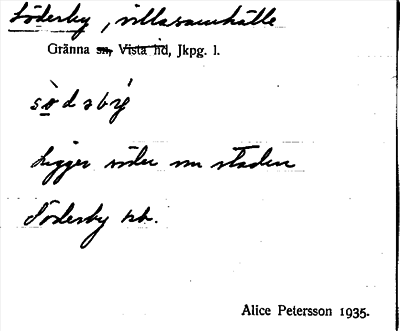 Söderby, villasamhälle
Gränna sn, Vista hd, Jkpg. l.
Ligger söder om staden
Söderby rb.
Alice Petersson 1935.